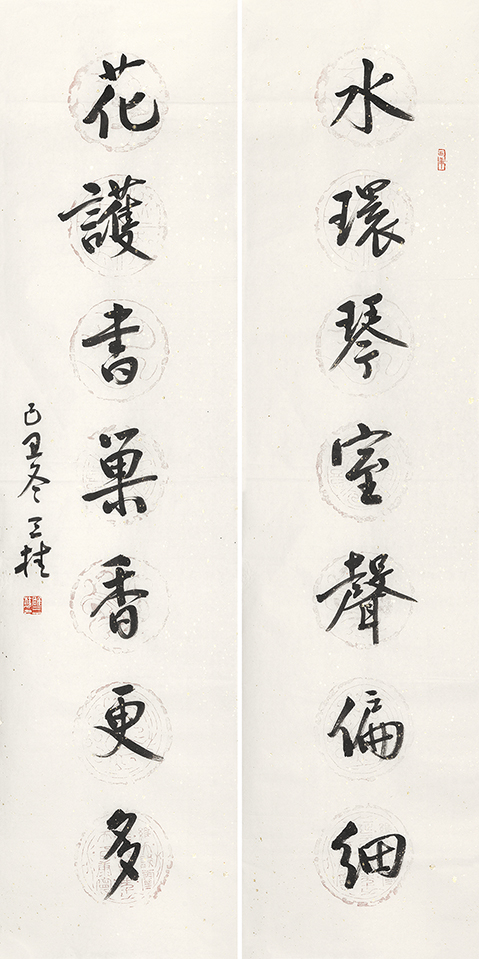 水環琴室聲偏細
花護書巢香更多
己丑冬 三桂